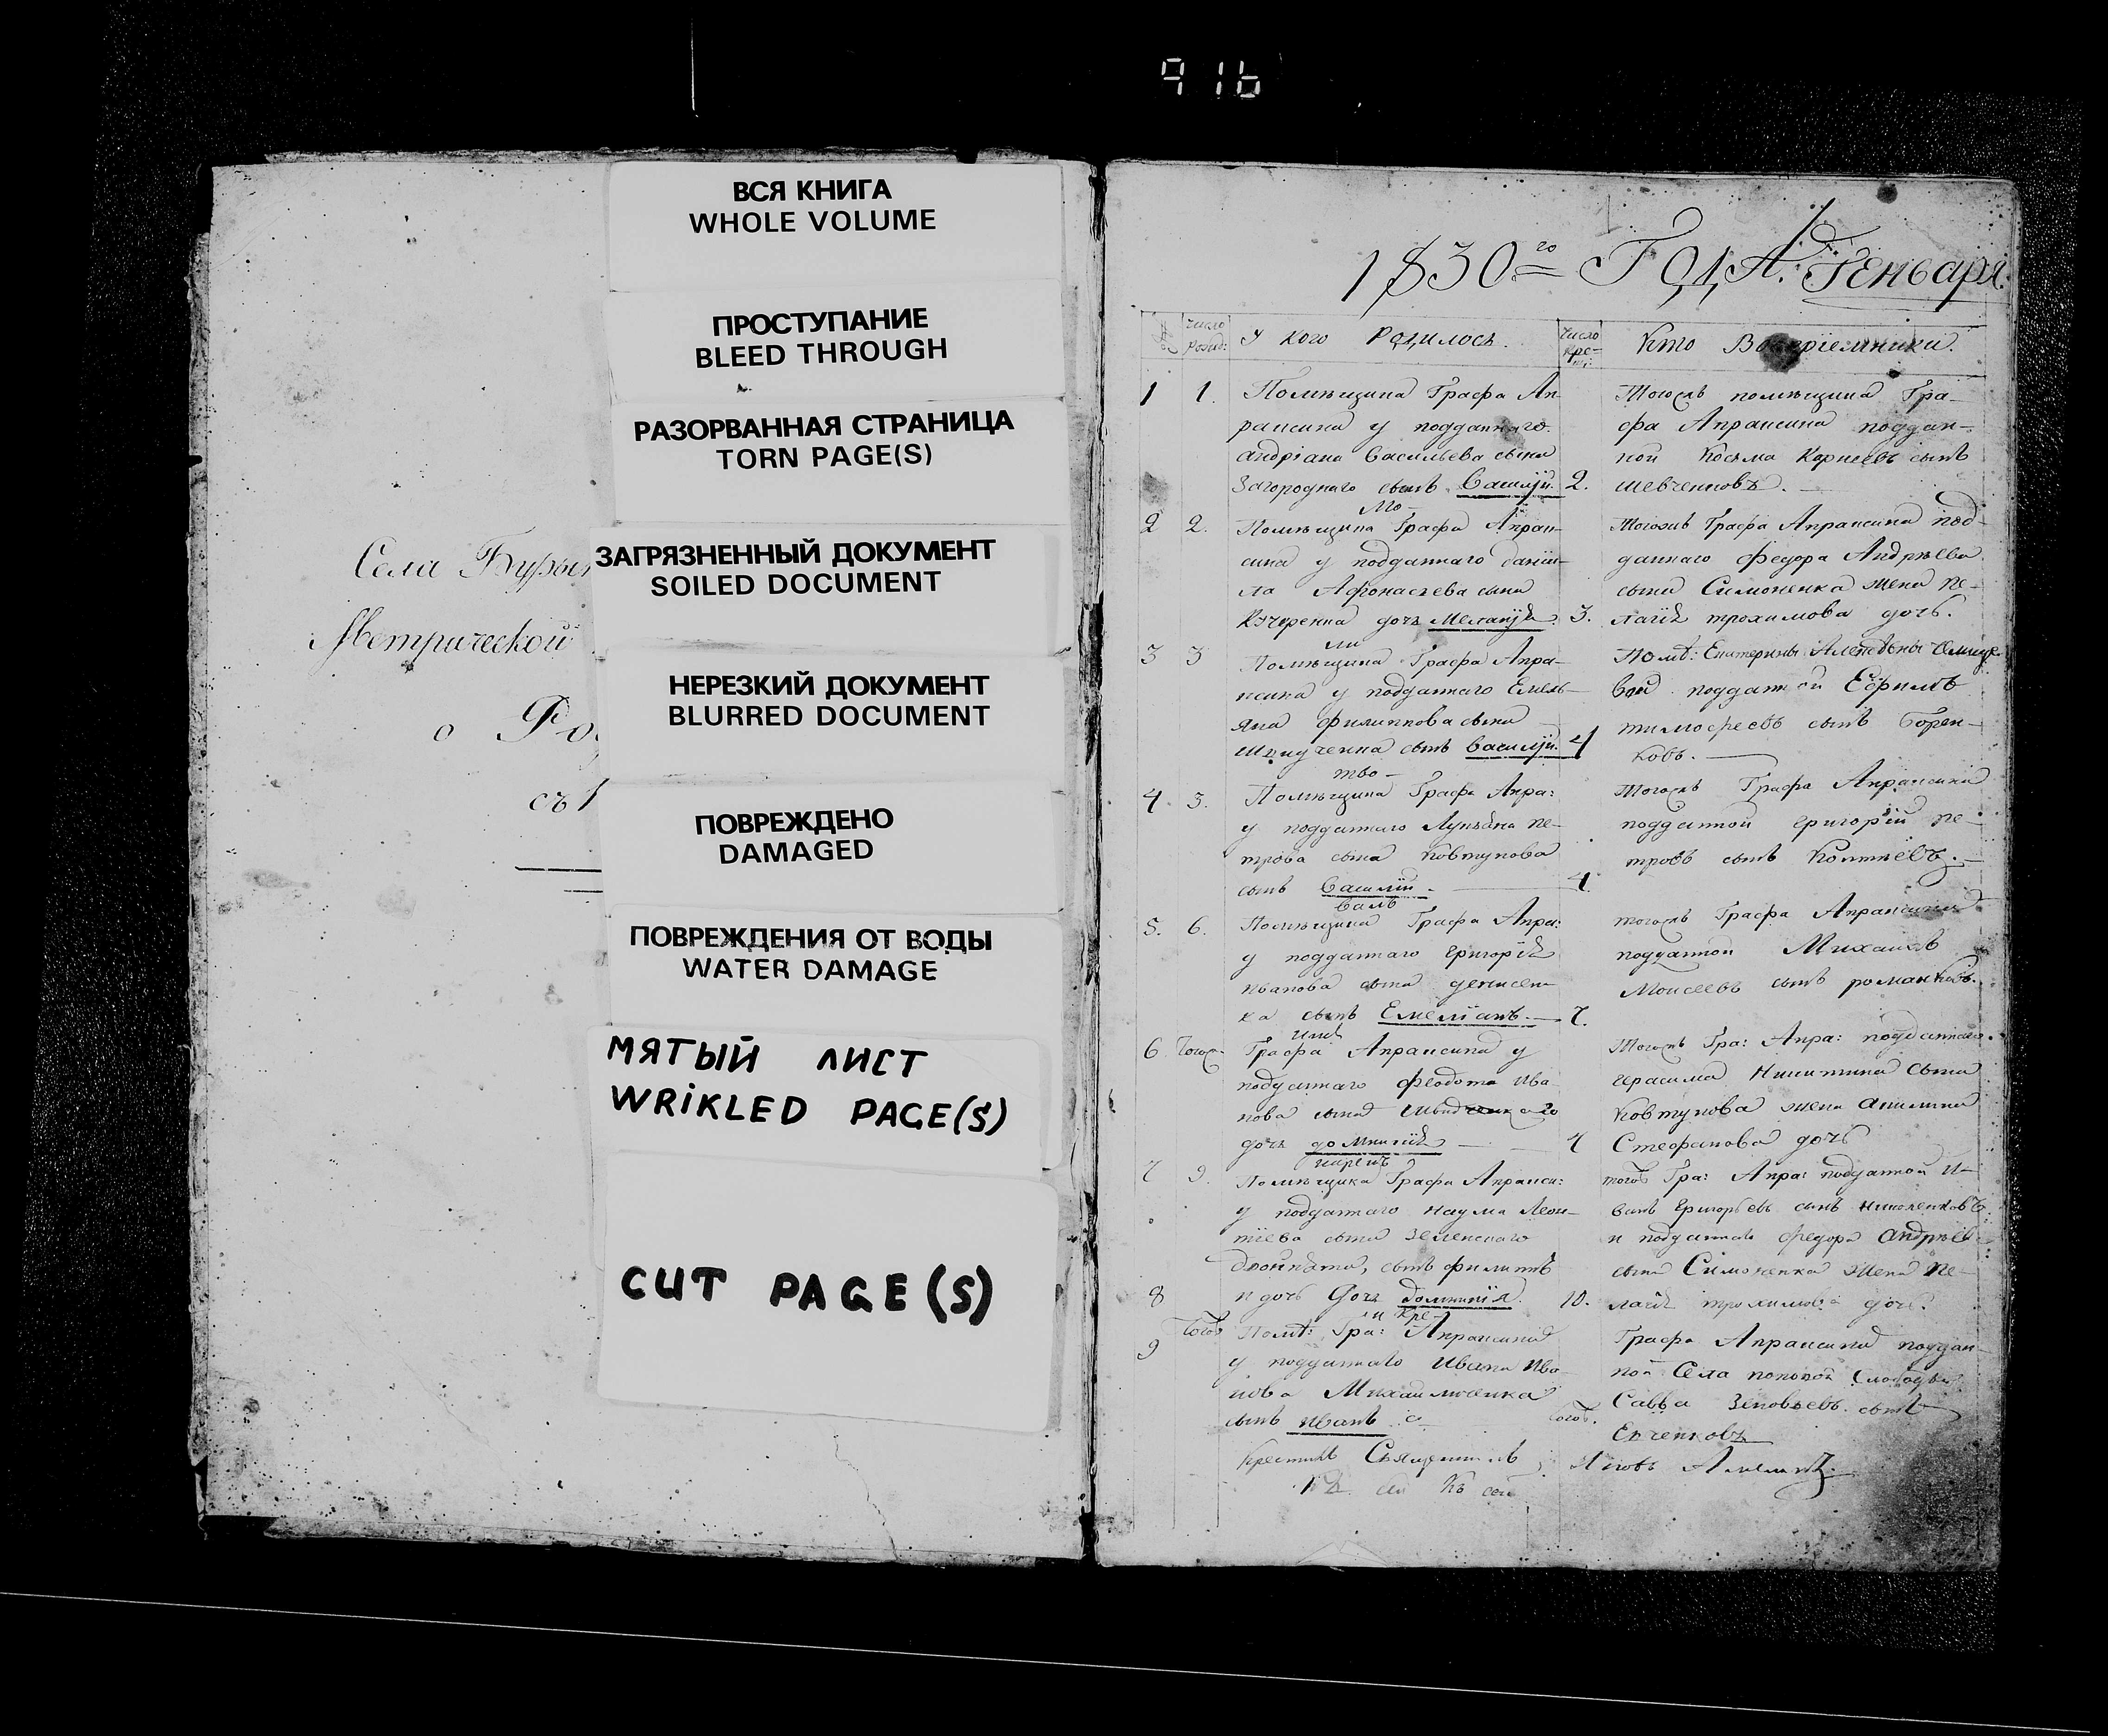 916
ВСЯ КНИГА
WHOLE VOLUME
ПРОСТУПАНИЕ
BLEED THROUGH
РАЗОРВАННАЯ СТРАНИЦА
TORN PAGE(S)
ЗАГРЯЗНЕННЫЙ ДОКУМЕНТ
SOILED DOCUMENT
НЕРЕЗКИЙ ДОКУМЕНТ
BLURRED DOCUMENT
ПОВРЕЖДЕНО
DAMAGED
ПОВРЕЖДЕНИЯ ОТ ВОДЫ
WATER DAMAGE
МЯТЫЙ ЛИСТ
WRiKLED PAGE(S)
CUT PAGE(S)
Села
Метрической
о
съ 1
1830го Года. Генваря.
Число рожд: У кого Родилось. Число кре- Кто Восприемники.
1 1. Помѣщика Графа Ап-
раксина у подданнаго
андріана Васильева сына
Загороднаго сынъ Василій. 2.
Тогожъ помѣщика Гра-
фа Апраксина поддан-
ной Косма Корнеевъ сынъ
шевченковъ.
2 2. Помѣщика Графа Апрак-
сина у подданнаго дании-
ла Афонасьева сына
Кучеренка дочь Меланія. 3.
Тогожъ Графа Апраксина под-
даннаго федора Андрѣева
сына Симоненка жена Пе-
лагія трохимова дочь.
3 3 Помѣщика Графа Апра-
ксина у подданнаго Емель-
яна филиппова сына
сынъ Василій. 4
Помѣ: Екатерины
вой подданной Ефимъ
тимофеевъ сынъ
ковъ.
4. 3. Помѣщика Графа Апра:
у подданнаго Лукьяна Пе-
трова сына Ковтунова
сынъ Василій. 4.
Тогожъ Графа Апраксина
подданной григорій Пе-
тровъ сынъ
5. 6. Помѣщика Графа Апра:
у подданнаго григорія
иванова сына денисен-
ка сынъ Емеліанъ. 7.
тогожъ Графа Апраксина
подданной Михаилъ
Моисеевъ сынъ романковъ.
6 Тогож Графа Апраксина у
подданнаго феодота ива-
нова сына
дочь домникія 7
Тогожъ Гра: Апра: подданнаго
герасима Никитина сына
Ковтунова жена акилина
Стефанова дочь
7 9. Помѣщика Графа Апракси:
у подданнаго наума Леон-
тіева сына Зеленскаго
двойнята, сынъ филипъ
8 и дочь домникія. 10.
тогожъ Гра: Апра: подданной И-
ванъ григорьевъ сынъ
и подданнаго федора андрѣева
сына Симоненка жена Пе-
лагія трохимова дочь.
9 Тогож Помѣ: Гра: Апраксина
у подданнаго ивана ива-
нова Михаиличенка
сынъ иванъ
Графа Апраксина поддан-
ной Села поповой Слободы
Савва Зѣновьевъ сынъ
Крестилъ Священникъ Іаковъ